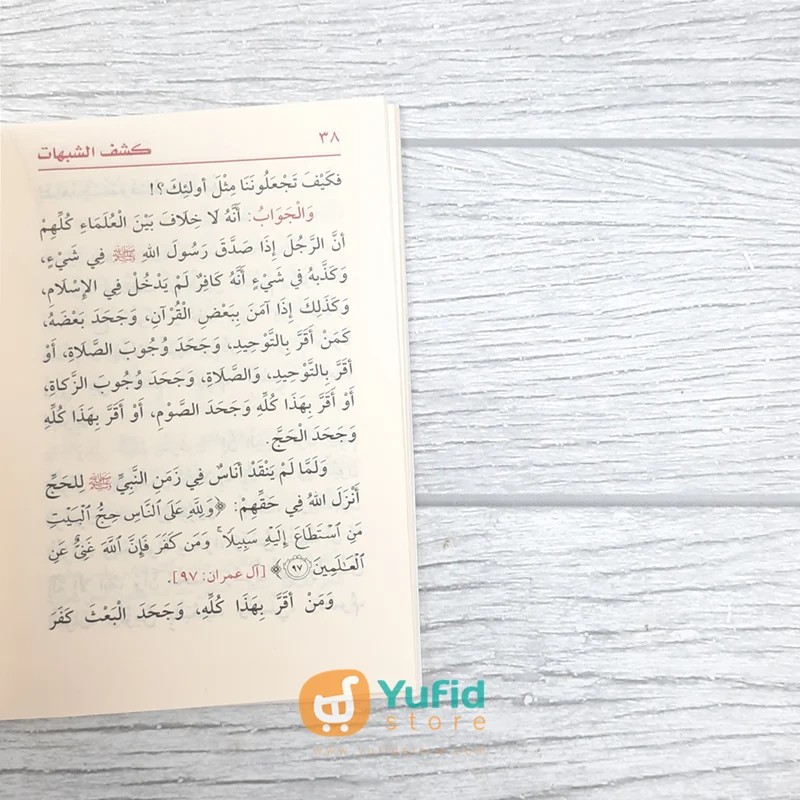 ٣٨ كشف الشبهات
فَكَيْفَ تَجْعَلُونَنَا مِثْلَ أُولَئِكَ؟!
وَالْجَوَابُ: أَنَّهُ لَا خِلَافَ بَيْنَ الْعُلَمَاءِ كُلِّهِمْ
أَنَّ الرَّجُلَ إِذَا صَدَّقَ رَسُولَ اللهِ ﷺ فِي شَيْءٍ،
وَكَذَّبَهُ فِي شَيْءٍ أَنَّهُ كَافِرٌ لَمْ يَدْخُلْ فِي الإِسْلَامِ،
وَكَذَلِكَ إِذَا آمَنَ بِبَعْضِ الْقُرْآنِ، وَجَحَدَ بَعْضَهُ،
كَمَنْ أَقَرَّ بِالتَّوْحِيدِ، وَجَحَدَ وُجُوبَ الصَّلَاةِ، أَوْ
أَقَرَّ بِالتَّوْحِيدِ، وَالصَّلَاةِ، وَجَحَدَ وُجُوبَ الزَّكَاةِ،
أَوْ أَقَرَّ بِهَذَا كُلِّهِ وَجَحَدَ الصَّوْمِ، أَوْ أَقَرَّ بِهَذَا كُلِّهِ
وَجَحَدَ الْحَجَّ.
وَلَمَّا لَمْ يَنْقَدْ أُنَاسٌ فِي زَمَنِ النَّبِيِّ ﷺ لِلحَجِّ
أَنْزَلَ اللهُ فِي حَقِّهِمْ: ﴿وَلِلَّهِ عَلَى ٱلنَّاسِ حِجُّ ٱلْبَيْتِ
مَنِ ٱسْتَطَاعَ إِلَيْهِ سَبِيلًا ۚ وَمَن كَفَرَ فَإِنَّ ٱللَّهَ غَنِيٌّ عَنِ
ٱلْعَٰلَمِينَ ٩٧﴾ [آل عمران: ٩٧].
وَمَنْ أَقَرَّ بِهَذَا كُلِّهِ، وَجَحَدَ الْبَعْثَ كَفَرَ
Yufid
store